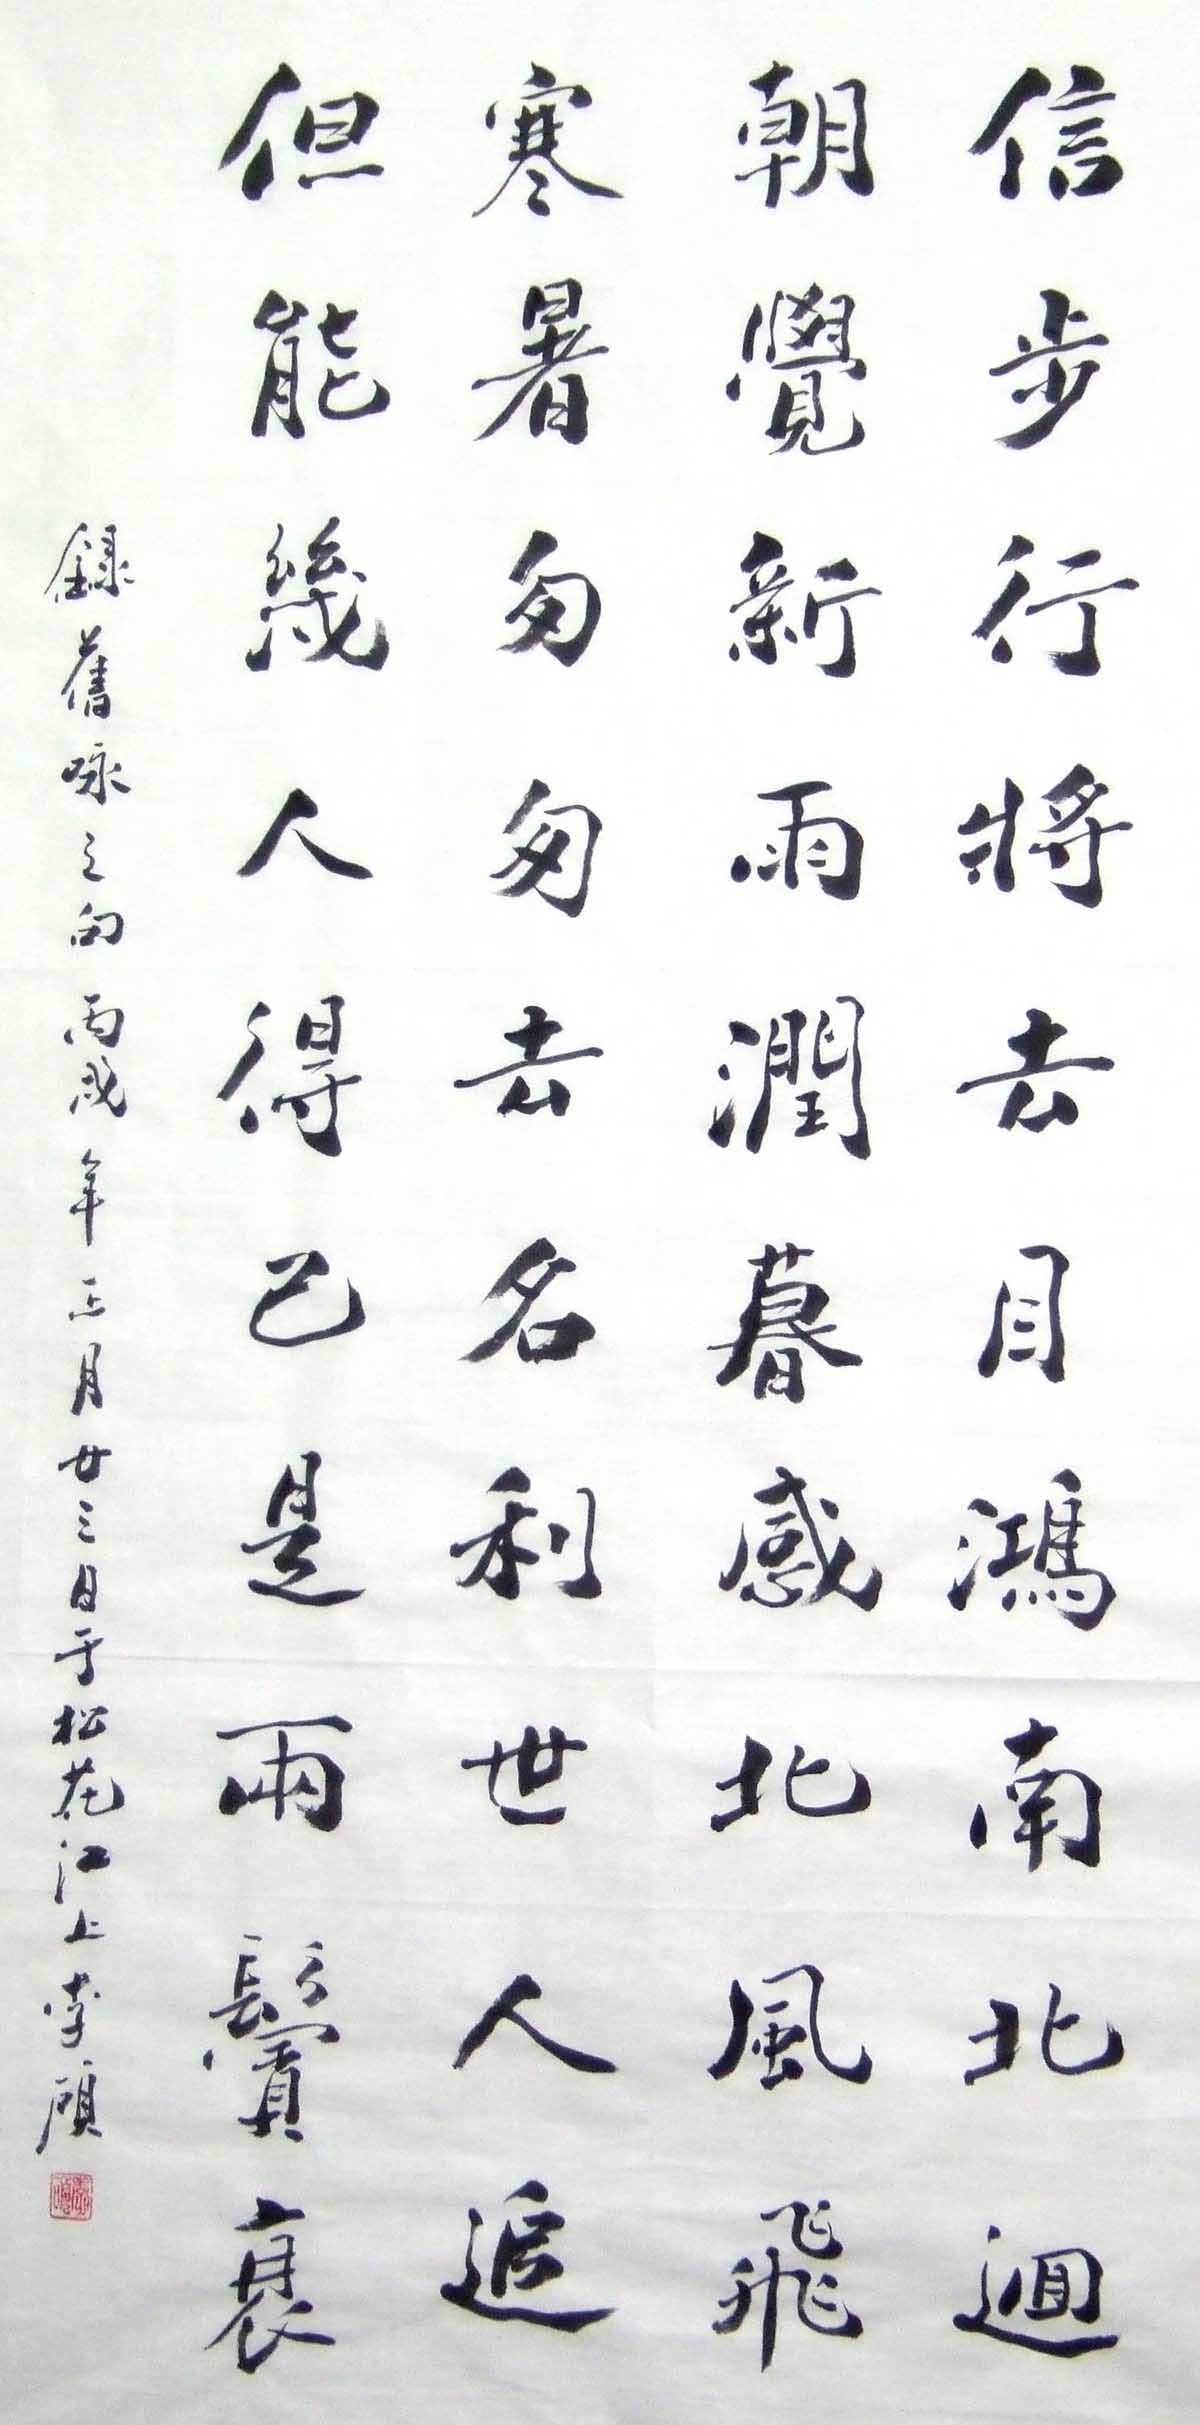 信步行將去目鴻南北迴
朝覺新雨潤暮感北風飛
寒暑匆匆去名利世人追
但能幾人得已是兩鬢衰
錄舊咏之句 丙戌年正月廿三日于松花江上李碩